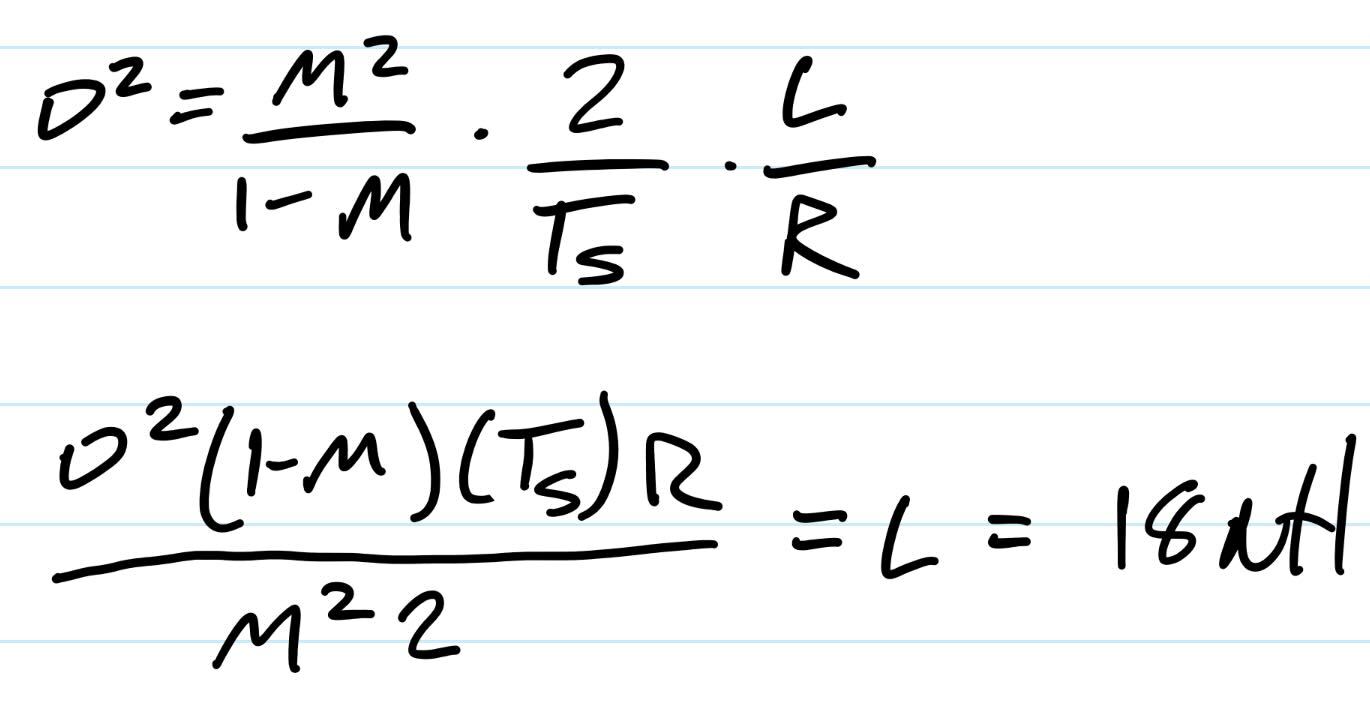 D² = M²/(1-M) · 2/Ts · L/R
D²(1-M)(Ts)R/(M² 2) = L = 18